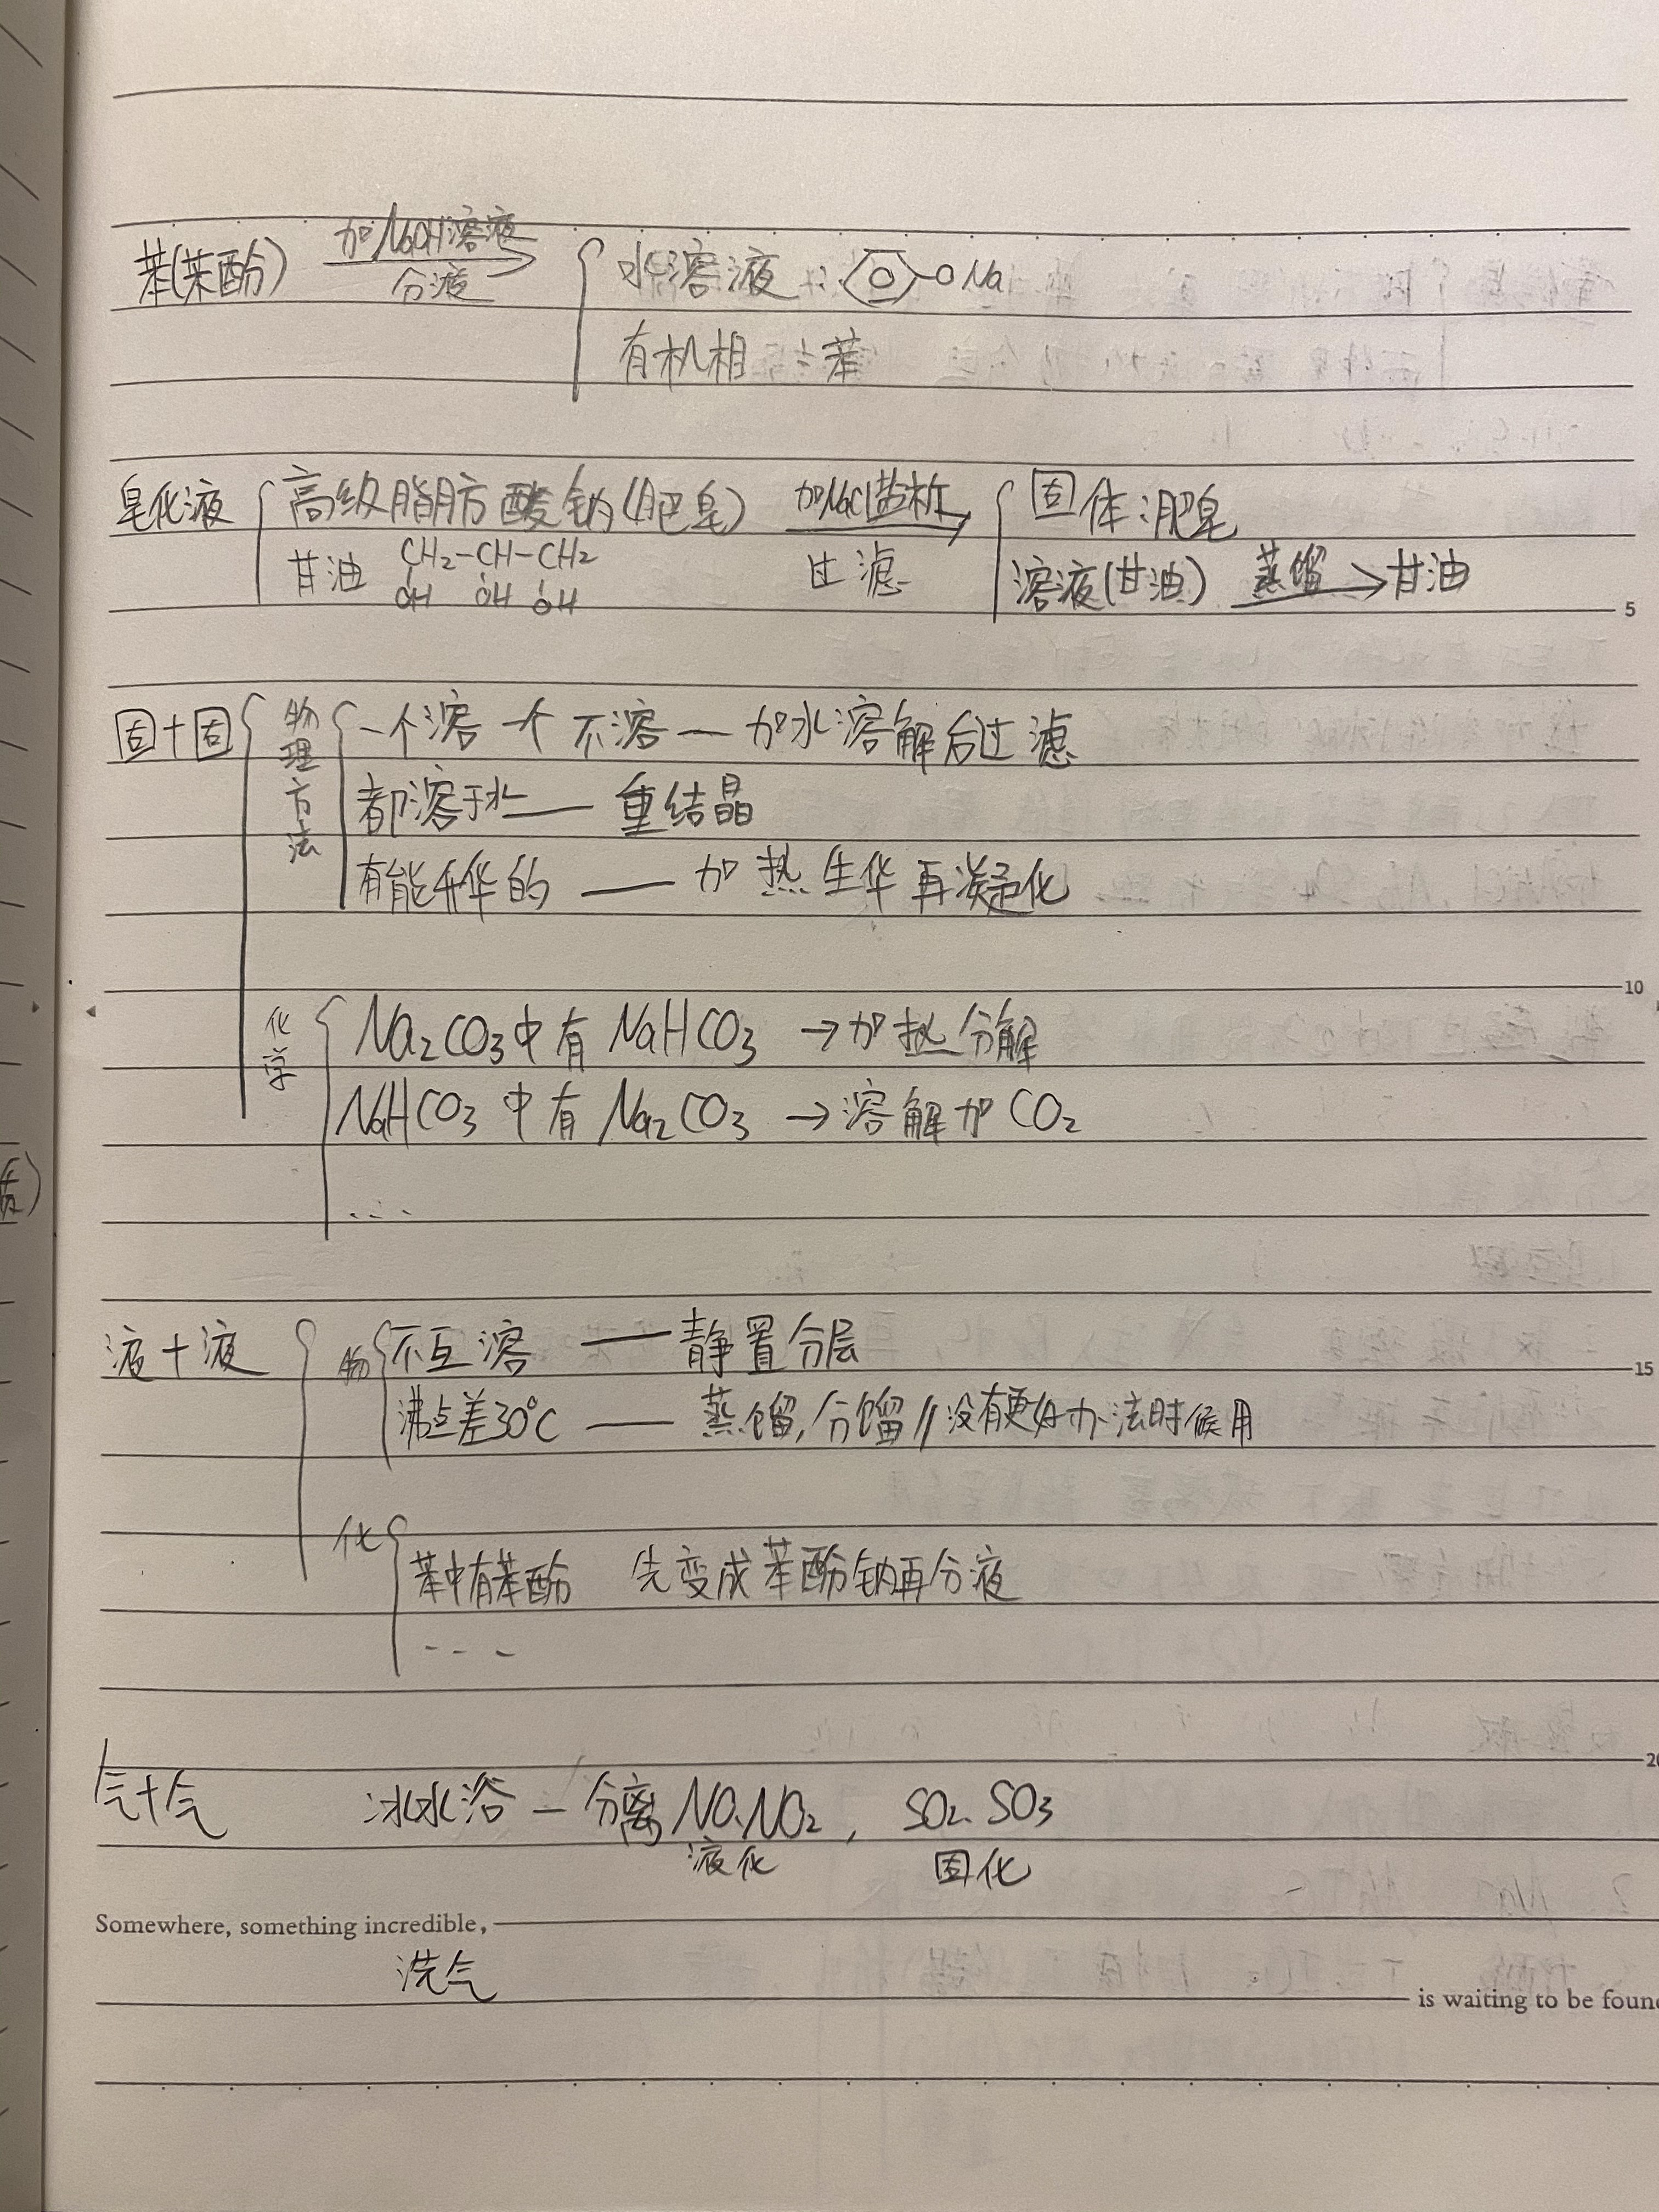 苯(苯酚) 加NaOH溶液 分液 水溶液: ONa
有机相:苯
皂化液 高级脂肪酸钠(肥皂) 加NaCl盐析 过滤 固体:肥皂
甘油 CH₂-CH-CH₂ 溶液(甘油) 蒸馏 → 甘油
OH OH OH
5
固+固 物理方法 一个溶一个不溶—加水溶解后过滤
都溶于水——重结晶
有能升华的——加热生华再凝华
10
化学 Na₂CO₃中有NaHCO₃ →加热分解
NaHCO₃中有Na₂CO₃ →溶解加CO₂
...
液+液 物 不互溶——静置分层
15
沸点差30℃——蒸馏,分馏//没有更好办法时候用
化 苯中有苯酚 先变成苯酚钠再分液
---
20
气+气 冰水浴—分离NO、NO₂, SO₂、SO₃
液化 固化
Somewhere, something incredible,
洗气
is waiting to be foun